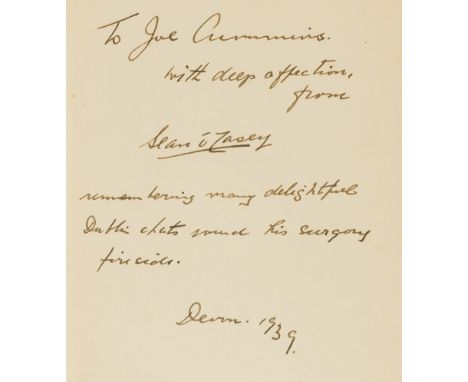 To Joe Cummins.
with deep affection,
from
Sean O'Casey
remembering many delightful
Dublin chats round his surgery
fireside.
Devon. 1939.